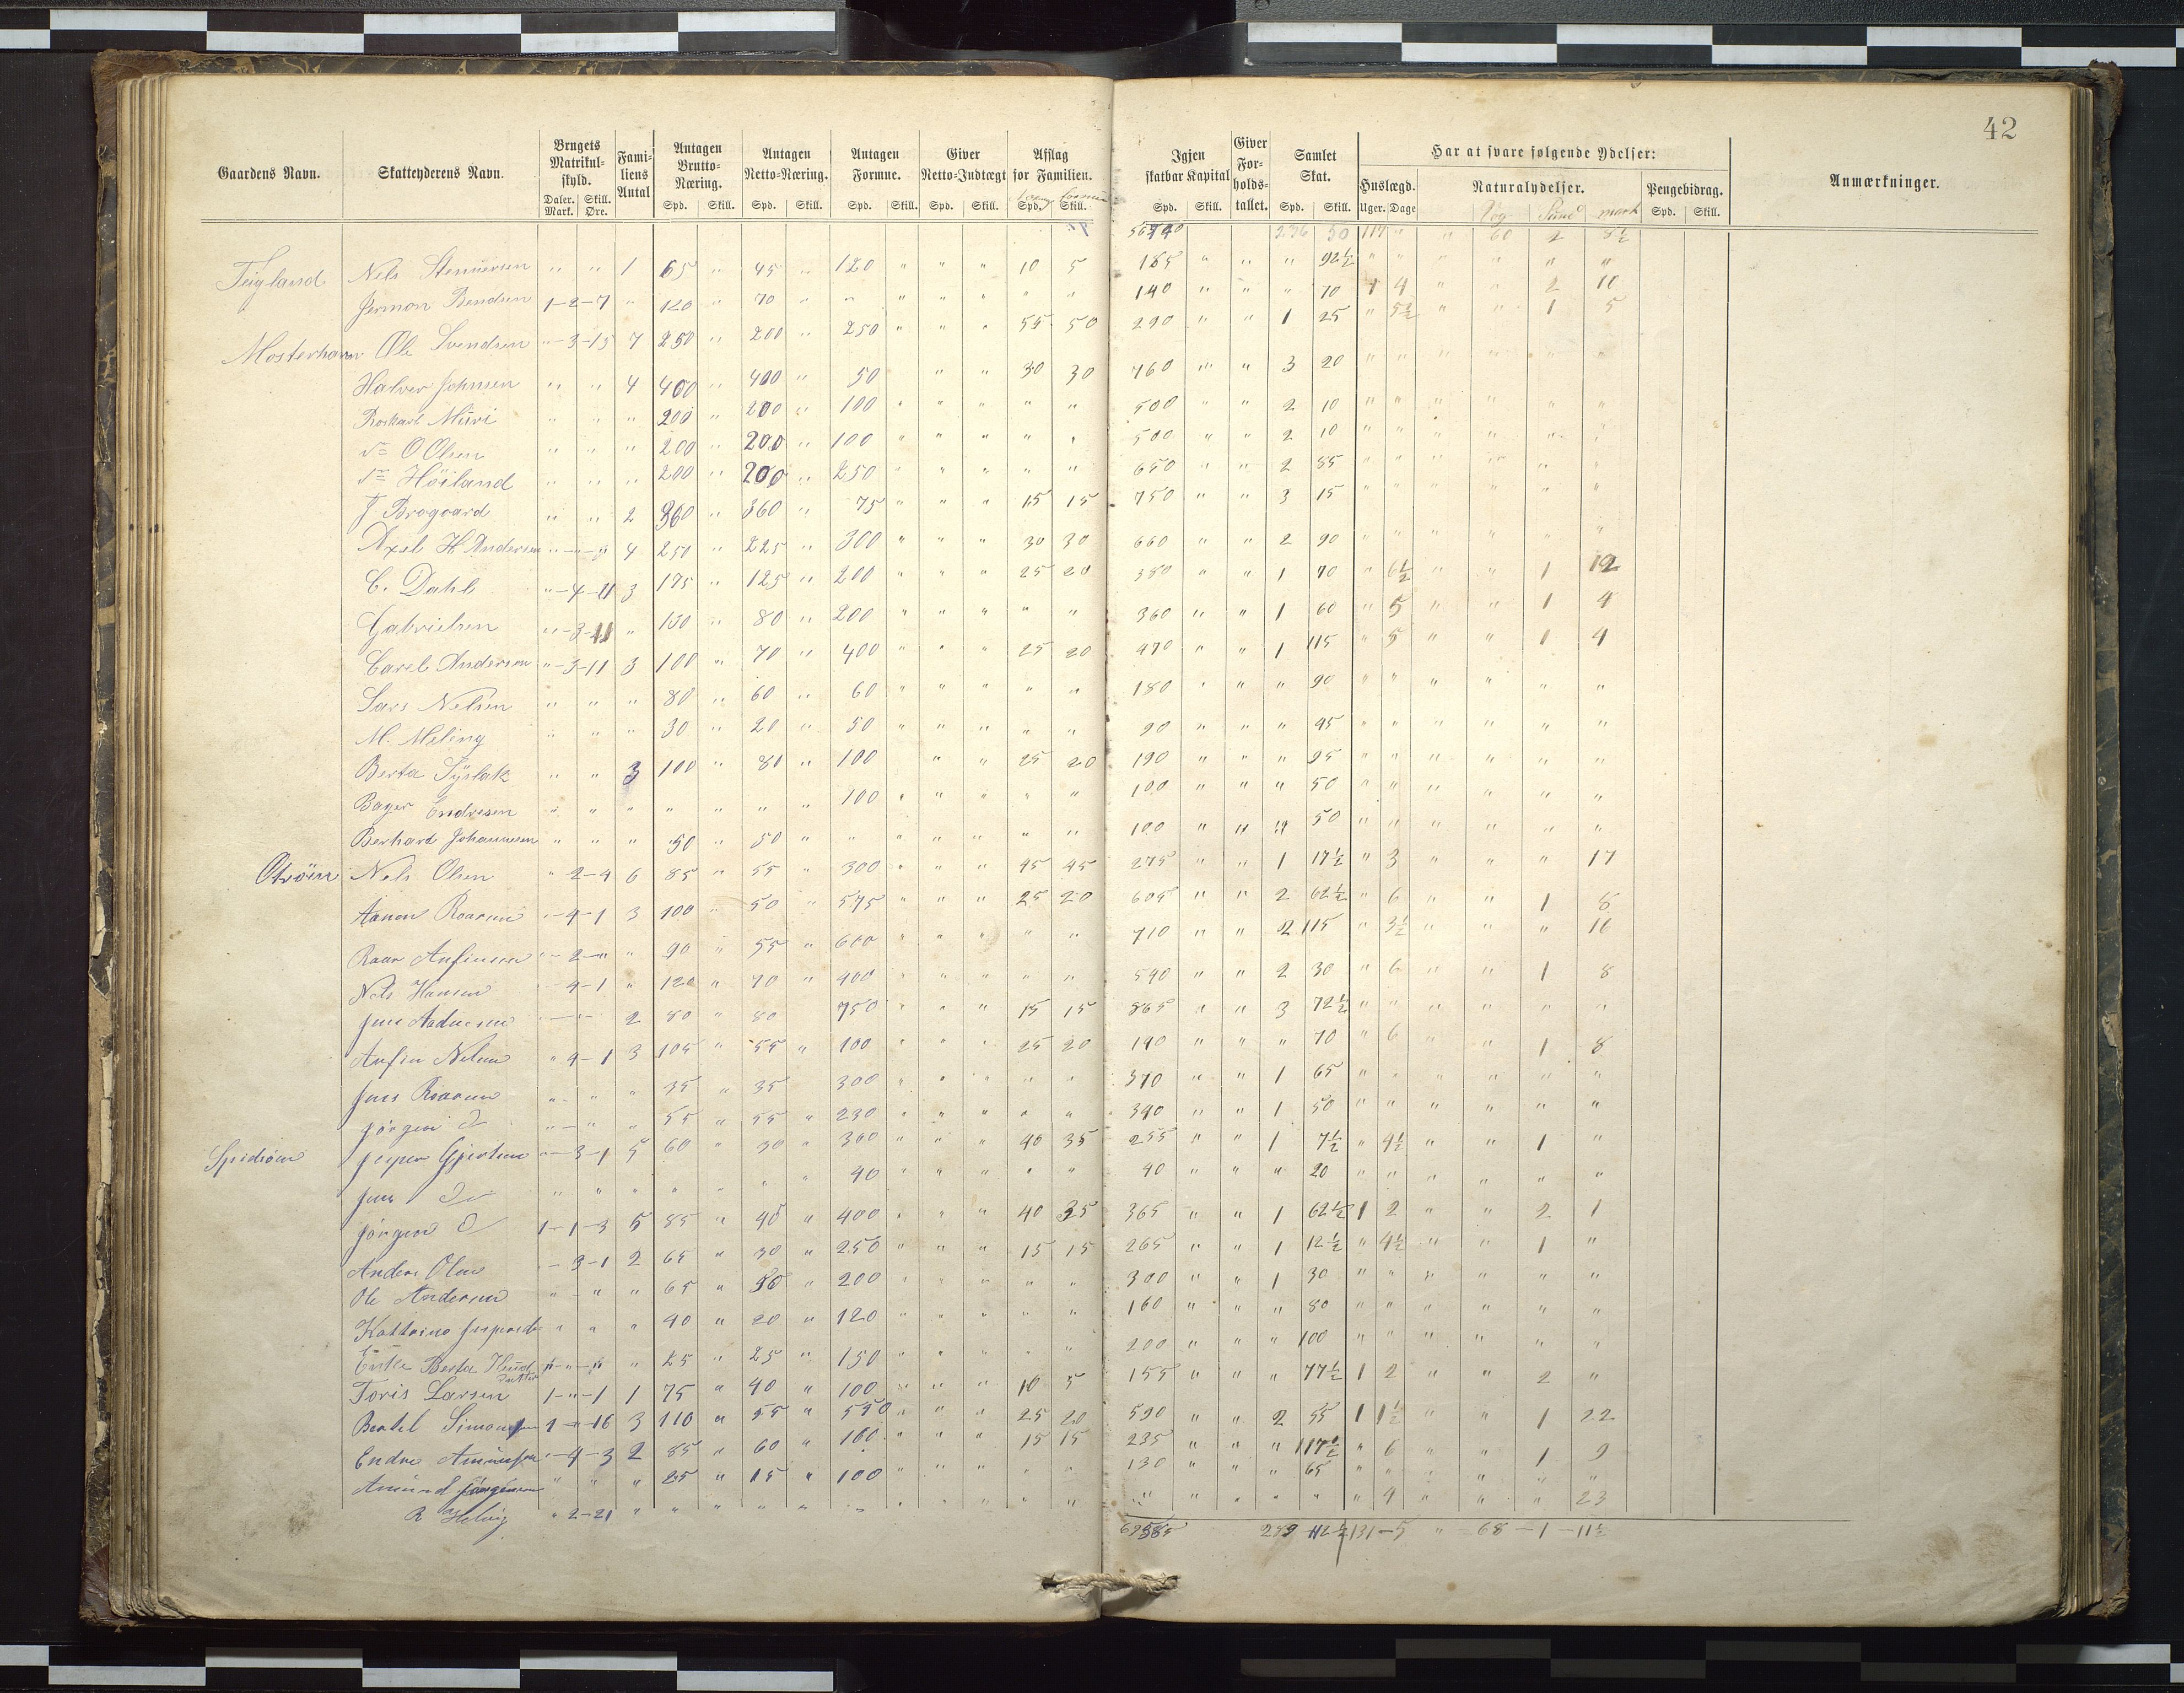 42
Gaardens Navn. Skatteyderens Navn. Brugets Matrikul-skyld. Daler. Mark. Skill. Øre. Fami-liens Antal Antagen Brutto-Næring. Spd. Skill. Antagen Netto-Næring. Spd. Skill. Antagen Formue. Spd. Skill. Giver Netto-Indtægt Spd. Skill. Afslag for Familien. Spd. Skill. Igjen skatbar Kapital Spd. Skill. Giver For-holds-tallet. Samlet Skat. Spd. Skill. Har at svare følgende Ydelser: Huslægd. Uger. Dage Naturalydelser. Vog Pund mark Pengebidrag. Spd. Skill. Anmærkninger.
236 50 117 " " 60 2 8½
Teigland Nels " " 1 65 " 45 " 120 " " " 10 5 165 " " " 92½ " " " " " "
Bendsen 1-2-7 " 120 " 70 " " " " " " " 140 " " " 70 1 4 " " 2 10
Mosterhavn Ole Svendsen " -3-15 7 250 " 200 " 250 " " " 55 50 290 " " 1 25 " 5½ " " 1 5
Halvor Johnsen " " 4 400 " 400 " 50 " " 30 30 760 " " 3 20 " " " " " "
" " " 200 " 200 " 100 " " " " " 500 " " 2 10 " " " " " "
O Olsen " " " 200 " 200 " 100 " " " " " 500 " " 2 10 " " " " " "
Höiland " " " 200 " 200 " 250 " " " " " 650 " " 2 85 " " " " " "
Brogaard " " 2 360 " 360 " 75 " " " 15 15 750 " " 3 15 " " " " " "
Axel H Andersen " - " 4 250 " 225 " 300 " " " 30 30 660 " " 2 90 " " " " " "
C. Dahl " -4-11 3 175 " 125 " 200 " " " 25 20 380 " " 1 70 " 6½ " " 1 12
Gabrielsen " -3-11 " 150 " 80 " 200 " " " " " 360 " " 1 60 " 5 " " 1 4
Carel Andersen " -3-11 3 100 " 70 " 400 " " " 25 20 470 " " 1 115 " 5 " " 1 4
Lars Nelsen " " " 80 " 60 " 60 " " " " " 180 " " " 90 " " " " " "
M. Meling " " " 30 " 20 " 50 " " " " " 90 " " " 45 " " " " " "
Berta " " 3 100 " 80 " 100 " " 25 20 190 " " " 95 " " " " " "
Endresen " " " " " " " 100 " " " " " 100 " " " 50 " " " " " "
Berhard Johannesen " " " 50 " 50 " " " " " " " 100 " " " 50 " " " " " "
Otröen Nels Olsen " 2-4 6 85 " 55 " 300 " " " 45 45 275 " " 1 17½ " 3 " " " 17
" -4-1 3 100 " 50 " 575 " " " 25 20 605 " " 2 62½ " 6 " " 1 8
Roar " -2-" " 90 " 55 " 600 " " " " " 710 " " 2 115 " 3½ " " "
Nels Hansen 4-1 " 120 " 70 " 400 " " " " " 540 " " 2 30 " 6 " " 1 8
Jens 2 80 " 80 750 " " " 15 15 865 " " 3 72½ " " " " " "
Anfin Nelsen " 4-1 3 105 " 55 " 100 " " " 25 20 140 " " " 70 " 6 " " 1 8
Jens " " " 35 " 35 300 " " " " " 370 " " 1 65 " " " " " "
Jörgen " " " 55 " 55 " 230 " " " " " 340 " " 1 50 " " " " " "
Jesper " -3-1 5 60 " 30 " 300 " " " 40 35 255 " " 1 7½ " 4½ " " 1 "
Jens " " " " " " " 40 " " " " " 40 " " " 20 " " " " " "
Jörgen 1-1-3 5 85 " 40 " 400 " " " 40 35 365 " " 1 62½ 1 2 " " 2 1
Anders Olsen -3-1 2 65 " 30 " 250 " " " 15 15 265 " " 1 12½ " 4½ " " 1 "
Ole Andersen " " " 65 " 50 " 200 " " " " " 300 " " 1 30 " " " " " "
" " " 40 " 20 " 120 " " " " " 160 " " " 80 " " " " " "
Enke Berta " 25 " 25 " 150 " " " " " 200 " " " 100 " " " " " "
Toris Larsen 1-"-1 1 75 " 40 " 100 " " " 10 5 155 " " " 77½ 1 2 " " 2 "
Bertel 1-"-16 3 110 " 55 " " " " 25 20 590 " " 2 55 1 1½ " " 1 22
Endre " -4-3 2 85 " 60 " 160 " " " 15 15 235 " " " 117½ " 6 " " 1 9
Amund " " " 25 " 15 " 100 " " " " " 130 " " " 65 " " " " " "
R Helvig " 2-21 " " " " " " " " " " " " " " " " " 4 " " " 23
131-5 " 68-1-11½